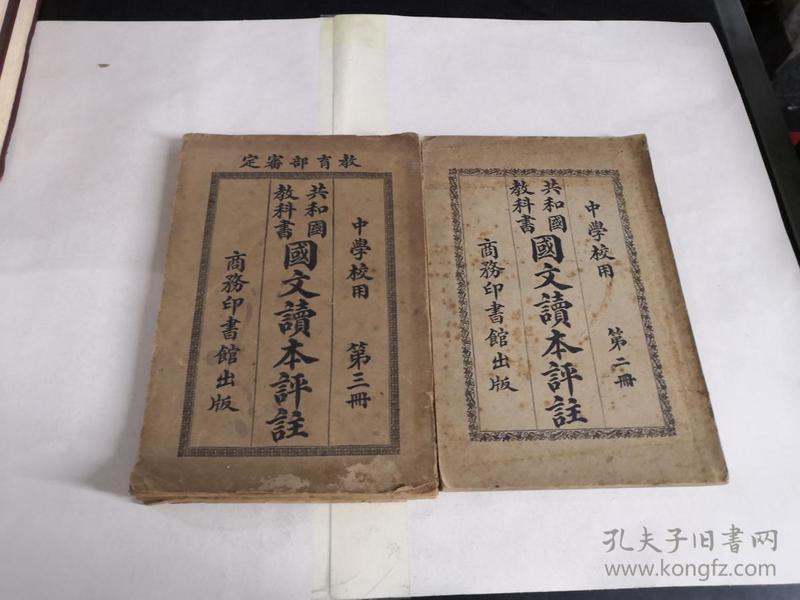 教育部審定
中學校用 第三冊
共和國
教科書
國文讀本評註
商務印書館出版
中學校用 第二冊
共和國
教科書
國文讀本評註
商務印書館出版
孔夫子旧书网
www.kongfz.com